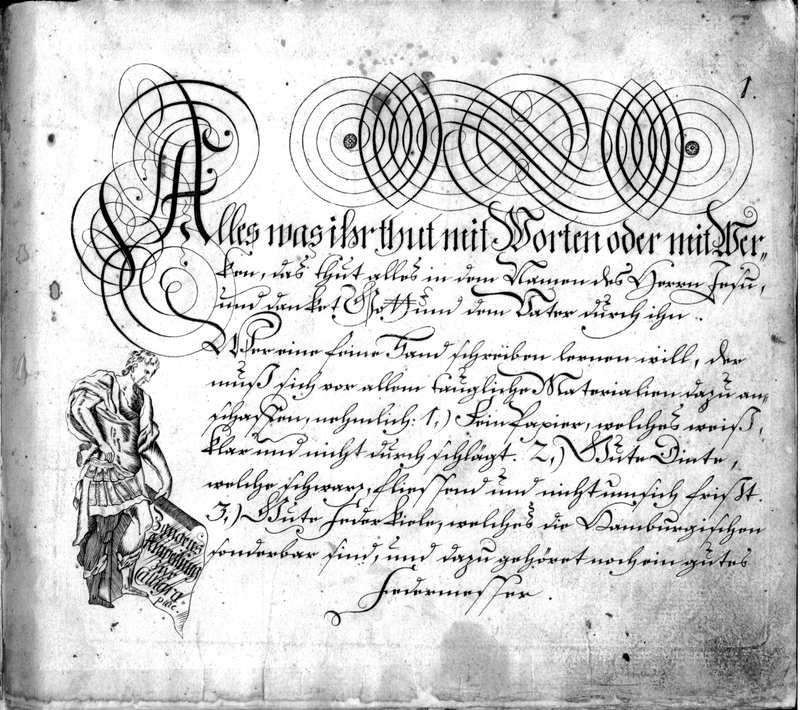 1.
Alles was ihr thut mit Worten oder mit Wer-
ken, das thut alles in dem Namen des Herrn Jesu,
und danket Gott und dem Vater durch ihn.
Wer eine feine Hand schreiben lernen will, der
muß sich vor allem taugliche Materialien dazu an-
schaffen, nehmlich: 1,) Fein Papier, welches weiß,
klar und nicht durch schlägt. 2,) Gute Dinte,
welche schwarz, fliessend und nicht um sich frißt.
3,) Gute Federkiele, welches die Hamburgischen
sonderbar sind, und dazu gehöret noch ein gutes
Federmesser.
Anleitung
zur
Calligra-
phie.